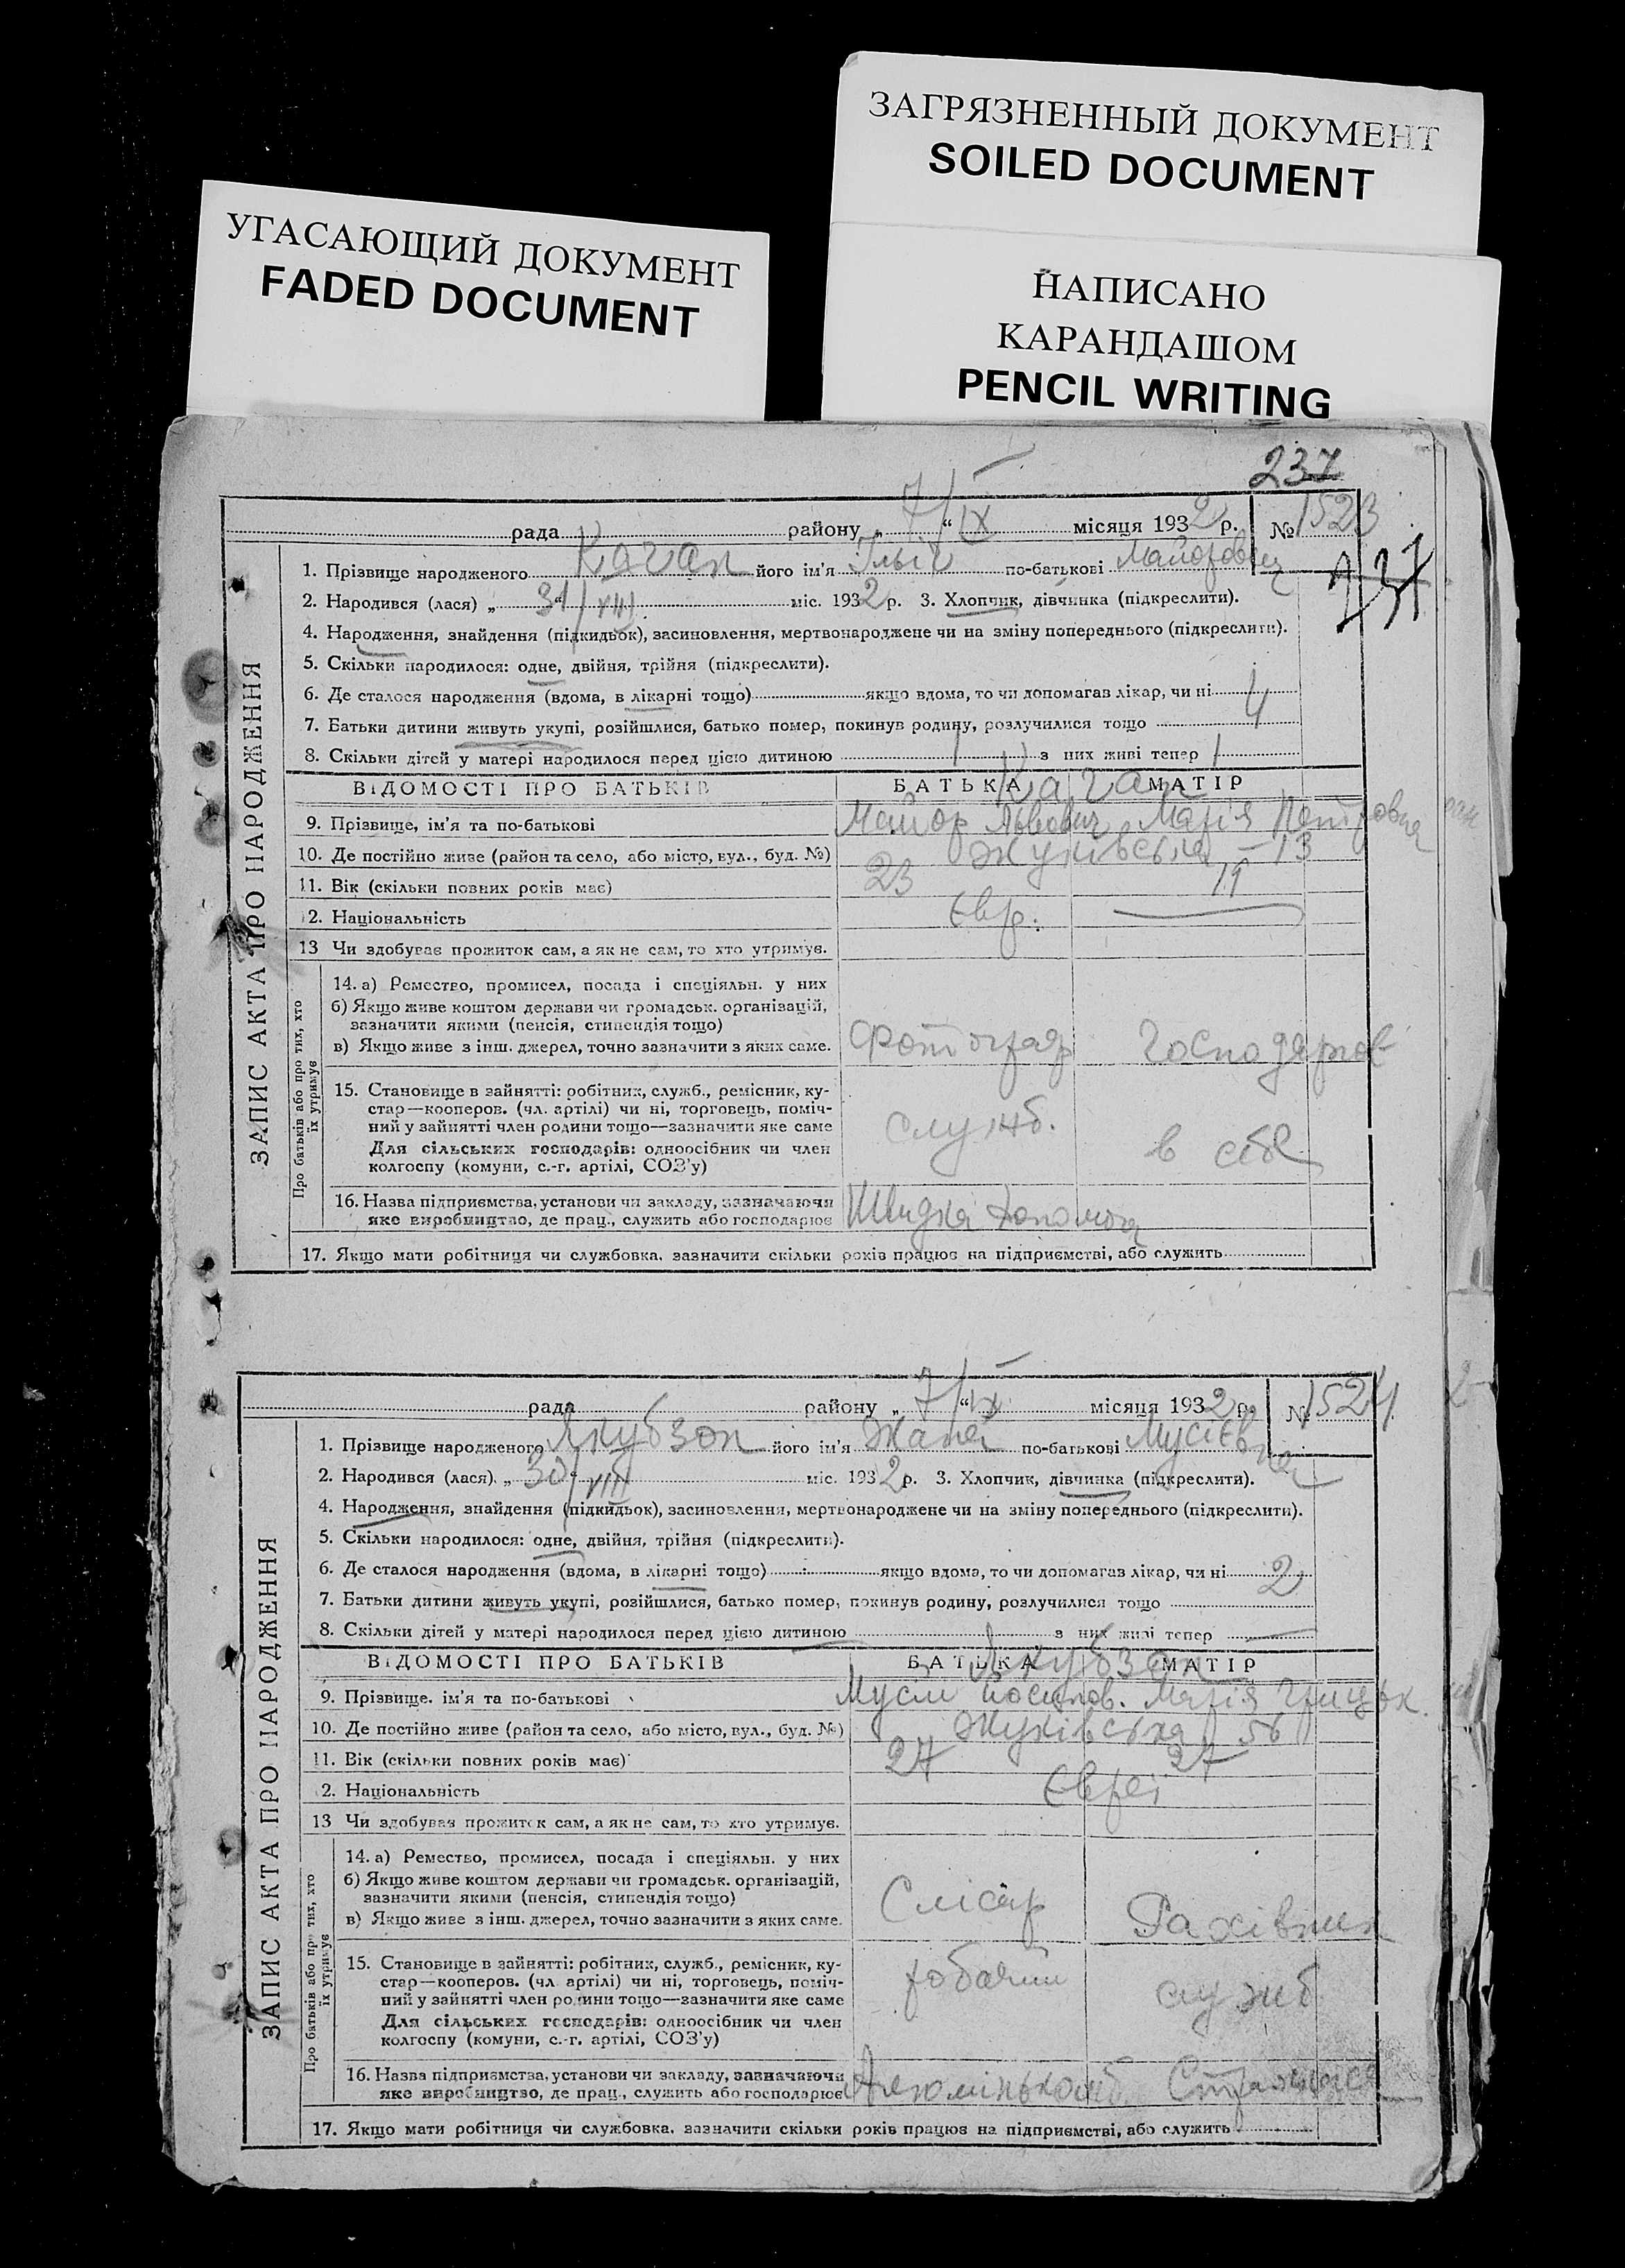 ЗАГРЯЗНЕННЫЙ ДОКУМЕНТ
SOILED DOCUMENT
УГАСАЮЩИЙ ДОКУМЕНТ
FADED DOCUMENT
НАПИСАНО
КАРАНДАШОМ
PENCIL WRITING
237
рада району „ 7/IX “ місяця 1932 р. № 1523
237
ЗАПИС АКТА ПРО НАРОДЖЕННЯ
1. Прізвище народженого Каган його ім'я Ілья по-батькові Майорович
2. Народився (лася) „ 31/VIII міс. 1932 р. 3. Хлопчик, дівчинка (підкреслити).
4. Народження, знайдення (підкидьок), засиновлення, мертвонароджене чи на зміну попереднього (підкреслити).
5. Скільки народилося: одне, двійня, трійня (підкреслити).
6. Де сталося народження (вдома, в лікарні тощо) якщо вдома, то чи допомагав лікар, чи ні 4
7. Батьки дитини живуть укупі, розійшлися, батько помер, покинув родину, розлучилися тощо
8. Скільки дітей у матері народилося перед цією дитиною 1 з них живі тепер 1
ВІДОМОСТІ ПРО БАТЬКІВ БАТЬКА МАТІР
Каган
9. Прізвище, ім'я та по-батькові Майор Львович Марія Петровна
10. Де постійно живе (район та село, або місто, вул., буд. №) Жуківська – 13
11. Вік (скільки повних років має) 23 19
12. Національність Євр.
13 Чи здобуває прожиток сам, а як не сам, то хто утримує.
Про батьків або про тих, хто їх утримує
14. а) Ремество, промисел, посада і спеціяльн. у них
б) Якщо живе коштом держави чи громадськ. організацій,
зазначити якими (пенсія, стипендія тощо)
в) Якщо живе з інш. джерел, точно зазначити з яких саме. Фотограф Господарює
15. Становище в зайнятті: робітник, служб., ремісник, ку-
стар—кооперов. (чл. артілі) чи ні, торговець, поміч-
ний у зайнятті член родини тощо—зазначити яке саме служб.
Для сільських господарів: одноосібник чи член в себе
колгоспу (комуни, с.-г. артілі, СОЗ'у)
16. Назва підприємства, установи чи закладу, зазначаючи Швидка допомога
яке виробництво, де прац., служить або господарює
17. Якщо мати робітниця чи службовка, зазначити скільки років працює на підприємстві, або служить
рада району „ 7/IX “ місяця 1932 р. № 1524
ЗАПИС АКТА ПРО НАРОДЖЕННЯ
1. Прізвище народженого Якубзон його ім'я Жанна по-батькові Мусієвна
2. Народився (лася) „ 30/VIII міс. 1932 р. 3. Хлопчик, дівчинка (підкреслити).
4. Народження, знайдення (підкидьок), засиновлення, мертвонароджене чи на зміну попереднього (підкреслити).
5. Скільки народилося: одне, двійня, трійня (підкреслити).
6. Де сталося народження (вдома, в лікарні тощо) якщо вдома, то чи допомагав лікар, чи ні 2
7. Батьки дитини живуть укупі, розійшлися, батько помер, покинув родину, розлучилися тощо
8. Скільки дітей у матері народилося перед цією дитиною з них живі тепер
ВІДОМОСТІ ПРО БАТЬКІВ БАТЬКА МАТІР
Якубзон
9. Прізвище, ім'я та по-батькові Мусій Йосипов. Марія Грицьк.
10. Де постійно живе (район та село, або місто, вул., буд. №) Жуківська 56
11. Вік (скільки повних років має) 27 27
2. Національність Євреї
13 Чи здобуває прожиток сам, а як не сам, то хто утримує.
Про батьків або про тих, хто їх утримує
14. а) Ремество, промисел, посада і спеціяльн. у них
б) Якщо живе коштом держави чи громадськ. організацій,
зазначити якими (пенсія, стипендія тощо)
в) Якщо живе з інш. джерел, точно зазначити з яких саме. Слісар Рахівник
15. Становище в зайнятті: робітник, служб., ремісник, ку-
стар—кооперов. (чл. артілі) чи ні, торговець, поміч-
ний у зайнятті член родини тощо—зазначити яке саме робочий служб
Для сільських господарів: одноосібник чи член
колгоспу (комуни, с.-г. артілі, СОЗ'у)
16. Назва підприємства, установи чи закладу, зазначаючи Алюмінькомб.
яке виробництво, де прац., служить або господарює
17. Якщо мати робітниця чи службовка, зазначити скільки років працює на підприємстві, або служить